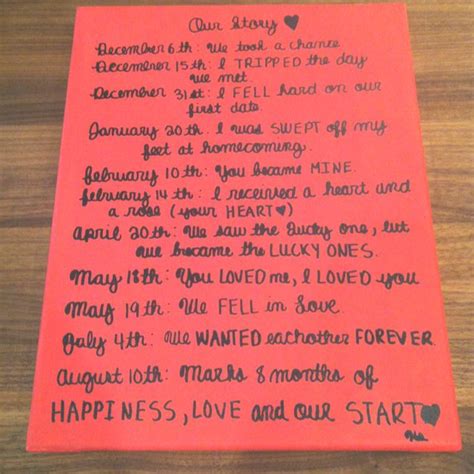 Our Story ♥
December 6th: We took a chance
December 15th: I TRIPPED the day
we met
December 31st: I FELL hard on our
first date.
January 20th: I was SWEPT off my
feet at homecoming.
February 10th: You became MINE.
February 14th: I received a heart and
a rose (your HEART♥)
April 20th: We saw the Lucky one, but
we became the LUCKY ONES.
May 18th: You LOVED me, I LOVED you
May 19th: We FELL in Love.
July 4th: We WANTED eachother FOREVER.
August 10th: Marks 8 months of
HAPPINESS, LOVE and our START♥